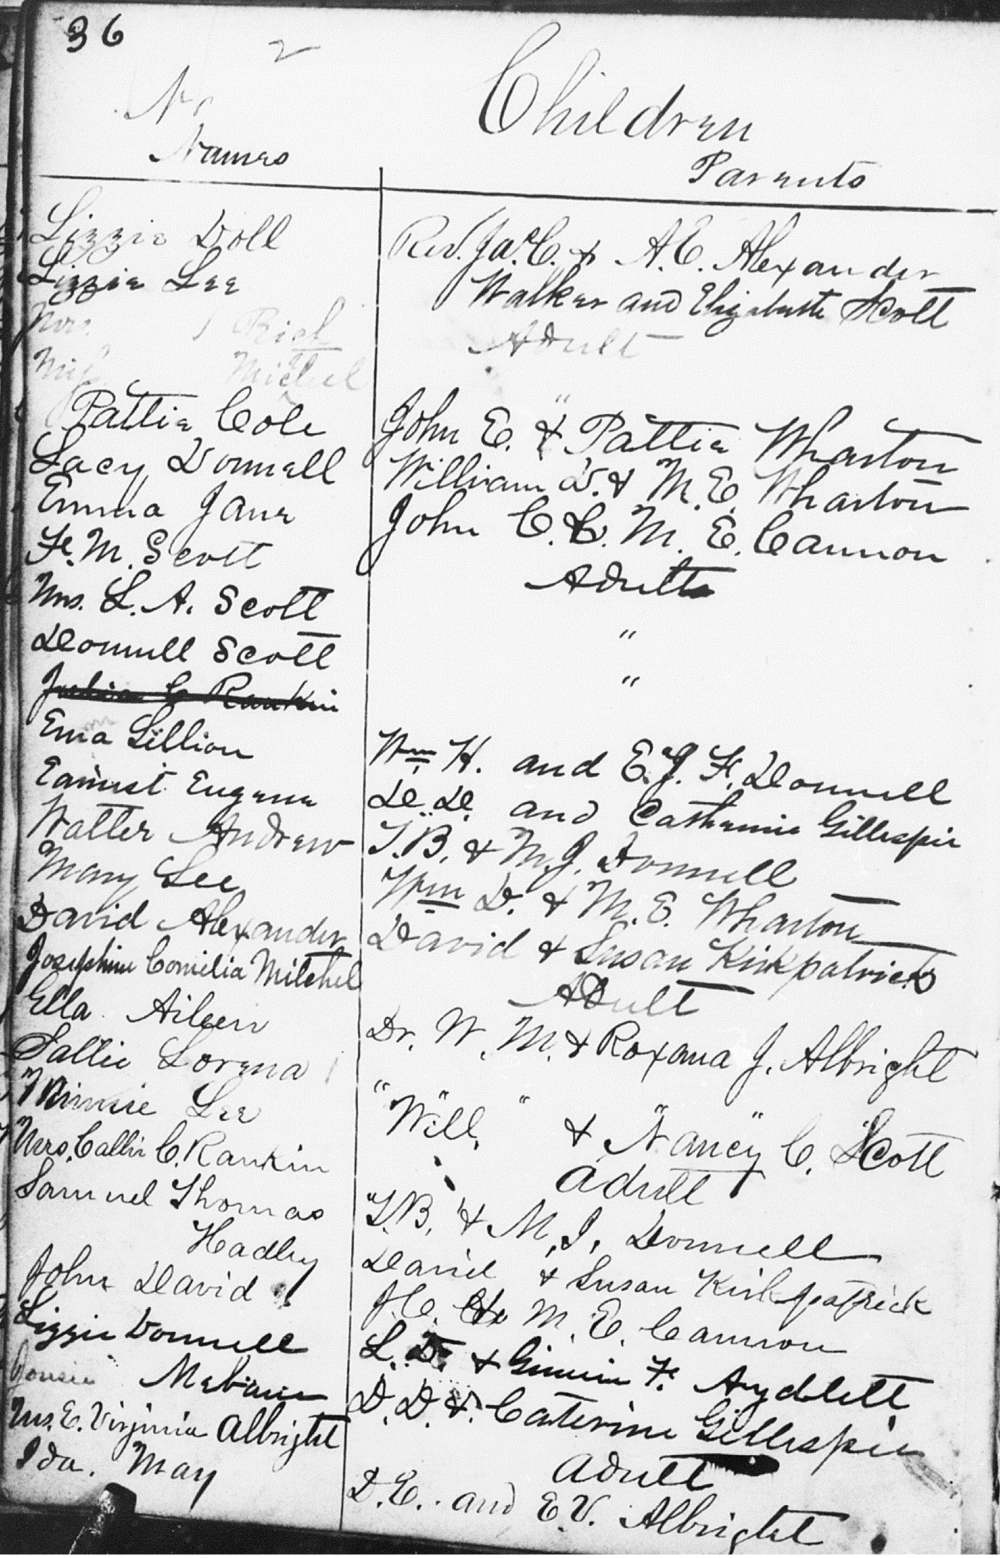 36
2
Children
Names Parents
Lizzie Doll Rev. Jas. C. & A. C. Alexander
Lizzie Lee Walker and Elizabeth Scott
Mrs. Rich Adult
Mitchel "
Pattie Cole John E. & Pattie Wharton
Lacy Donnell William D. & M. E. Wharton
Emma Jane John C. & M. E. Cannon
F. M. Scott Adults
Mrs. L. A. Scott "
Donnell Scott "
Julia C Rankin
Ema Lillion Wm H. and E. J. F. Donnell
Earnist Eugene D. D. and Catherine Gillespie
Walter Andrew T. B. & M. J. Donnell
Mary Lee Wm D. & M. E. Wharton
David Alexander David & Susan Kirkpatrick
Josephine Cornelia Mitchel Adult
Ella Aileen Dr. W. M. & Roxana J. Albright
Sallie Lorena " " " "
Minnie Lee Will & Nancy C. Scott
Mrs. Callie C. Rankin Adult
Samuel Thomas T. B. & M. J. Donnell
Hadley
John David David & Susan Kirkpatrick
Lizzie Donnell J. C. & M. E. Cannon
Mebane L. D. & F. Aydlett
D. D. & Caterine Gillespie
Mrs. E. Virginia Albright Adult
Ida May D. E. and E. V. Albright